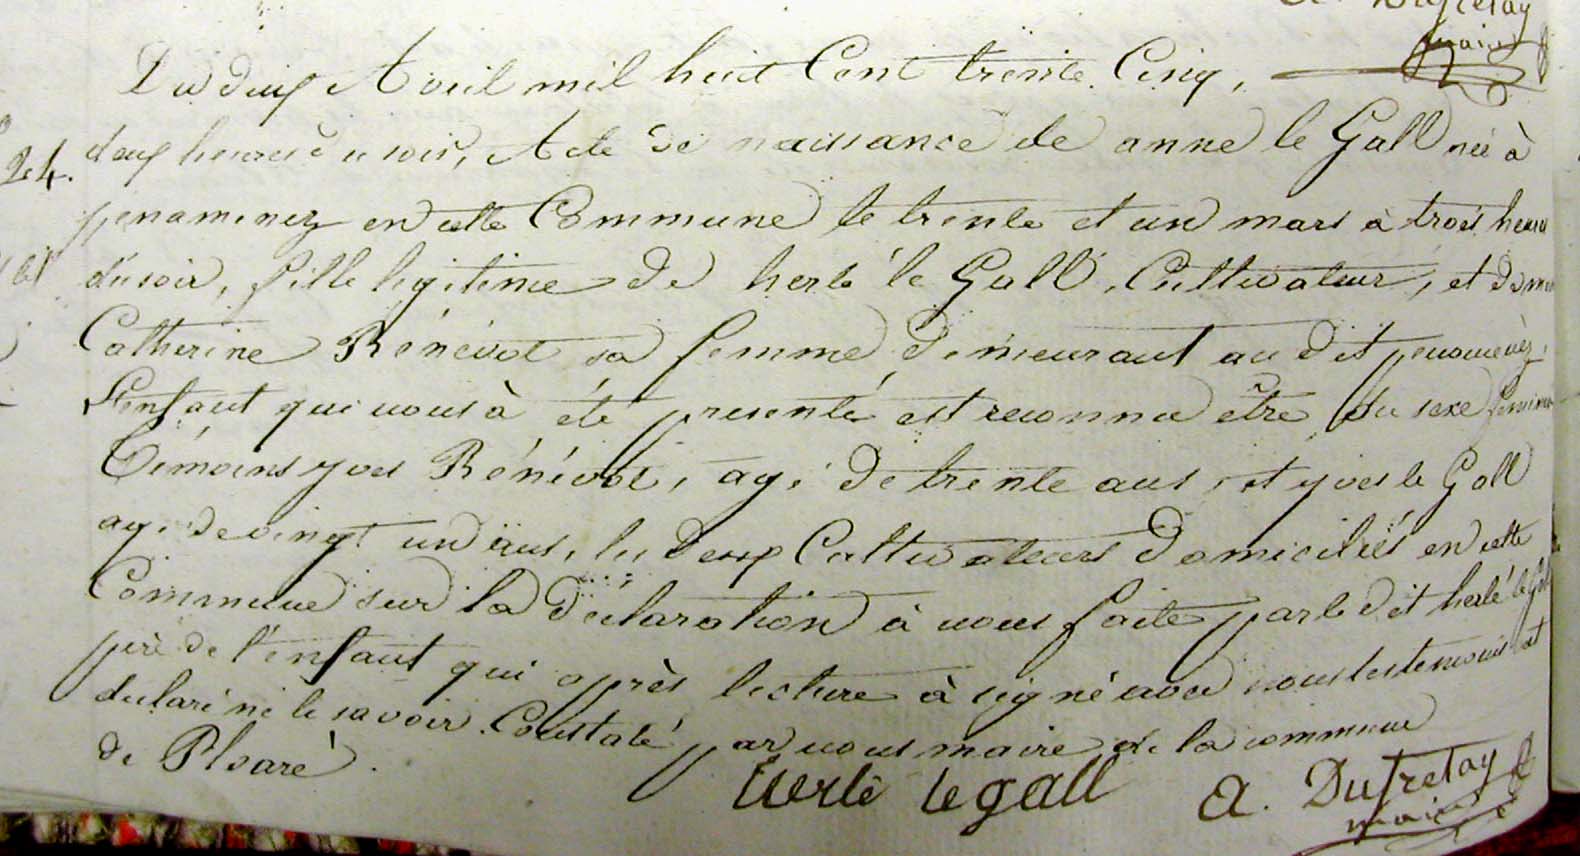 A. Dufretay
maire
Du deux Avril mil huit Cent trente Cinq,
24. deux heures du soir, Acte de naissance de anne le Gall née à
penamenez en cette Commune le trente et un mars à trois heures
du soir, fille legitime de herlé le Gall, Cultivateur, et de
Catherine Rénévot sa femme demeurant au dit penamenez,
L'enfant qui nous à été presenté est reconnu être du sexe feminin
Témoins yves Rénévot, agé de trente ans, et yves le Gall
agé de vingt un ans, les deux Cultivateurs domiciliés en cette
Commune sur la déclaration à nous faite par le dit herlé le Gall
père de l'enfant qui après lecture à signé avec nous les temoins ont
declaré ne le savoir. Constaté par nous maire de la commune
de Ploaré.
herlé le gall A. Dufretay
maire